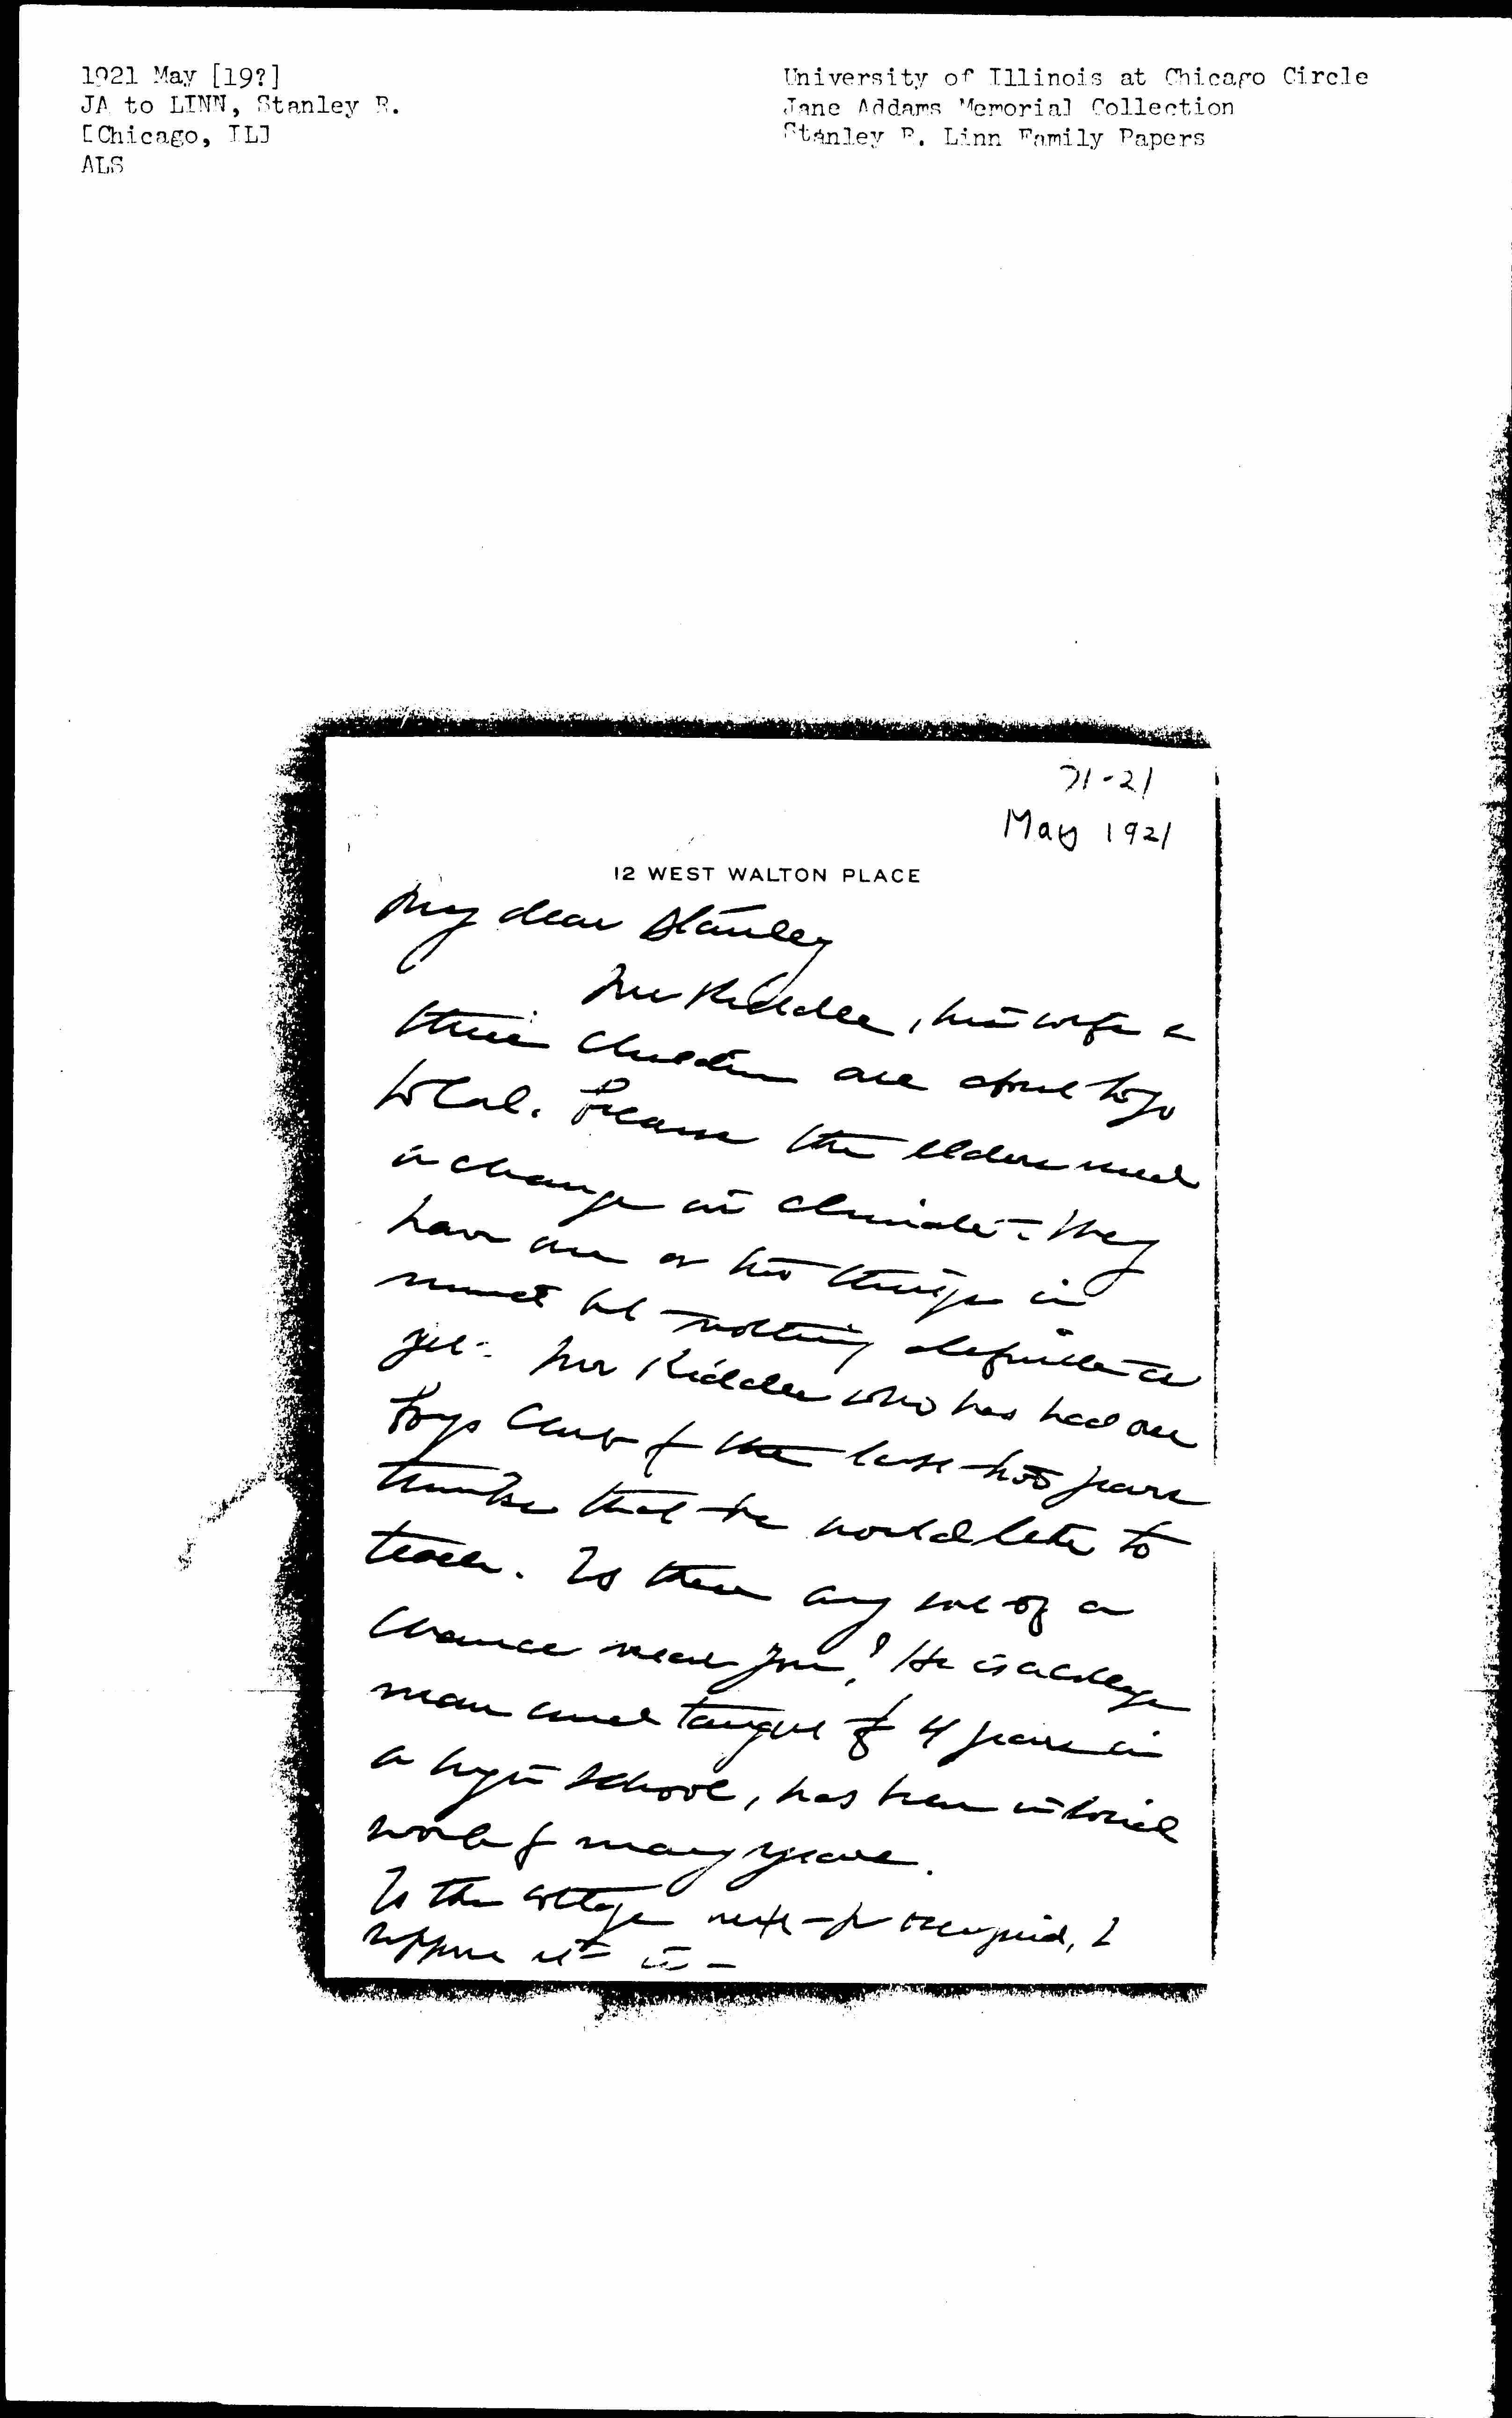 1921 May [19?]
JA to LINN, Stanley R.
[Chicago, IL]
ALS
University of Illinois at Chicago Circle
Jane Addams Memorial Collection
Stanley R. Linn Family Papers
71-21
May 1921
12 WEST WALTON PLACE
My dear Stanley
Mr Riddle, his wife &
three children are about to go
to Cal. because the elders need
a change in climate - They
have one or two things in
mind but nothing definite as
yet - Mr Riddle who has had our
Boys Club f the last two years
thinks that he would like to
teach. Is there any sort of a
chance near you? He is a college
man and taught f 4 years in
a high school, has been in social
work f many years.
Is the cottage next - occupied, I
suppose it is -